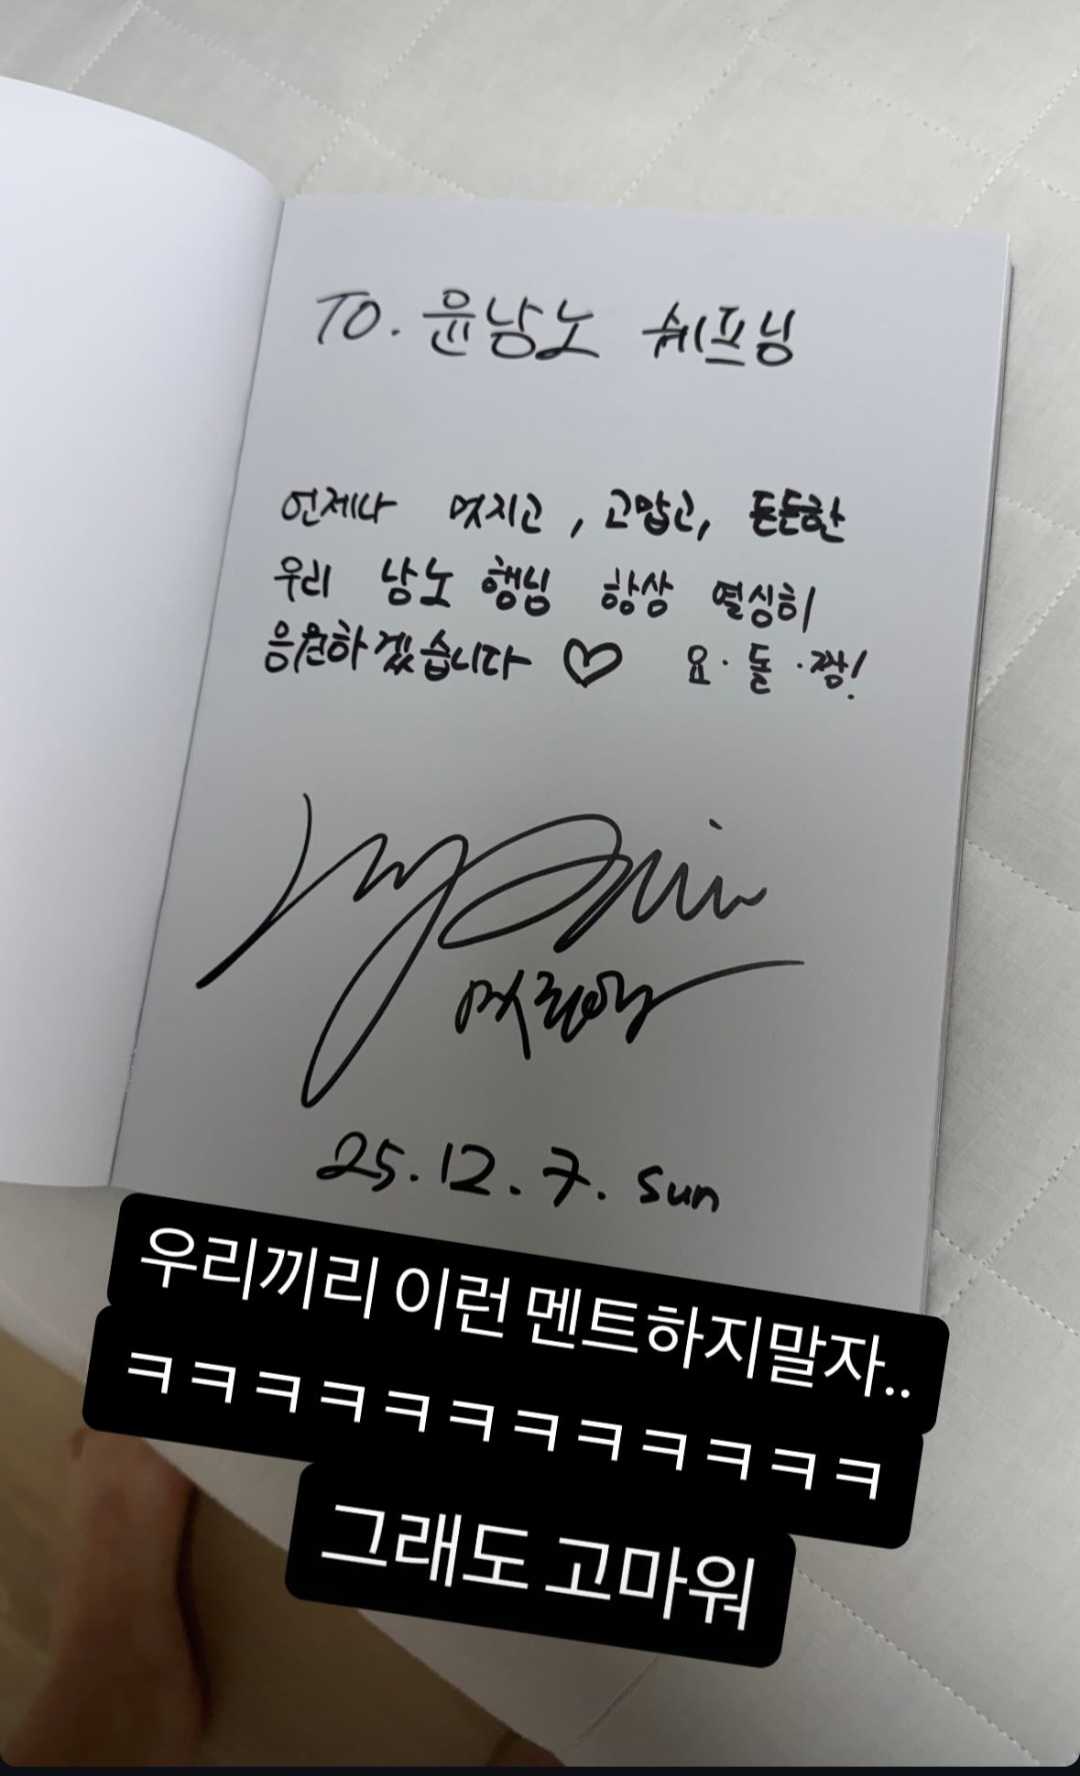 TO. 윤남노 쉐프님
언제나 멋지고, 고맙고, 든든한
우리 남노 행님 항상 열심히
응원하겠습니다 ♡ 요·돌·짱!
25.12.7. sun
우리끼리 이런 멘트하지말자..
ㅋㅋㅋㅋㅋㅋㅋㅋㅋㅋㅋㅋ
그래도 고마워